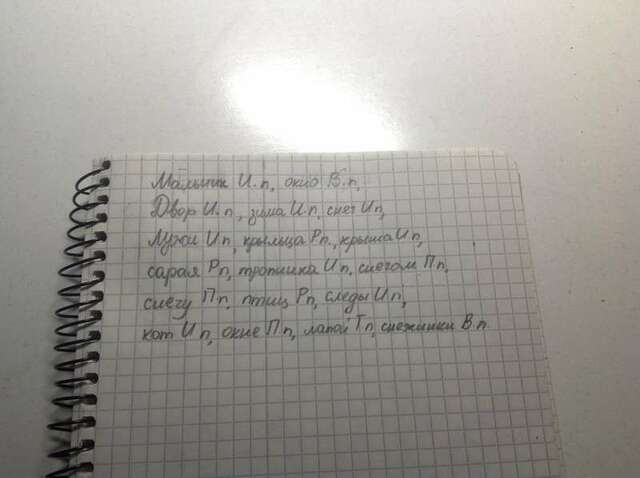 Мальчик И.п, окно В.п,
Двор И.п, зима И.п, снег И.п,
Лужи И.п, крыльца Р.п, крыша И.п,
сарая Р.п, тропинка И.п, снегом П.п,
снегу П.п. птиц Р.п, следы И.п,
кот И.п, окне П.п, лапой Т.п, снежинки В.п.